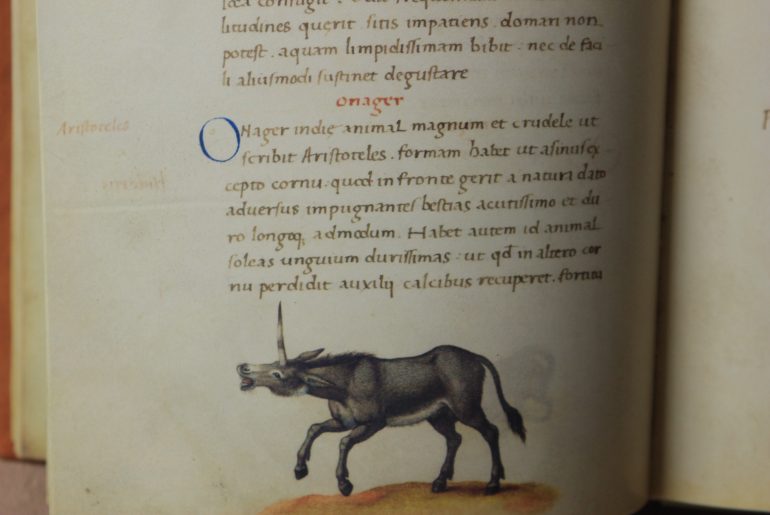 litudines querit. sitis impatiens. domari non
potest. aquam limpidissimam bibit. nec de faci
li aliusmodi sustinet degustare
Onager
Aristoteles
ONager indię animal magnum et crudele ut
scribit Aristoteles. formam habet ut asinus ex
cepto cornu. quod in fronte gerit a natura dato
adversus impugnantes bestias acutissimo et du
ro longoq; admodum. Habet autem id animal
soleas unguium durissimas. ut qd in altero cor
nu perdidit auxilij calcibus recuperet. fortitu